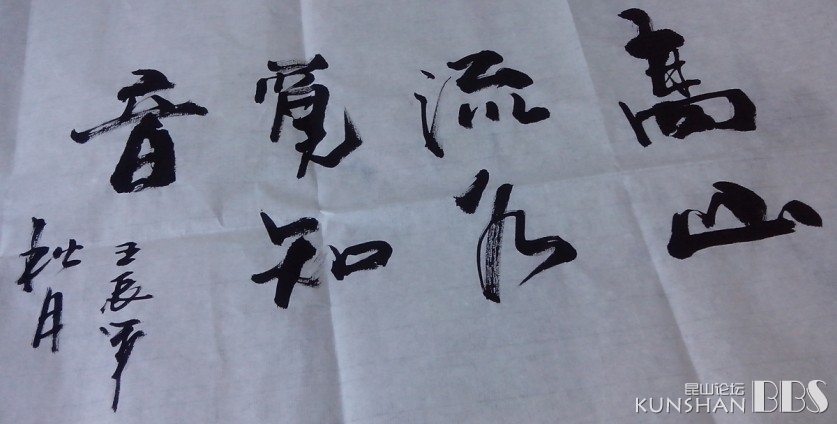 高山
流水
覓知
音
壬辰
秋月
昆山论坛
KUNSHAN BBS